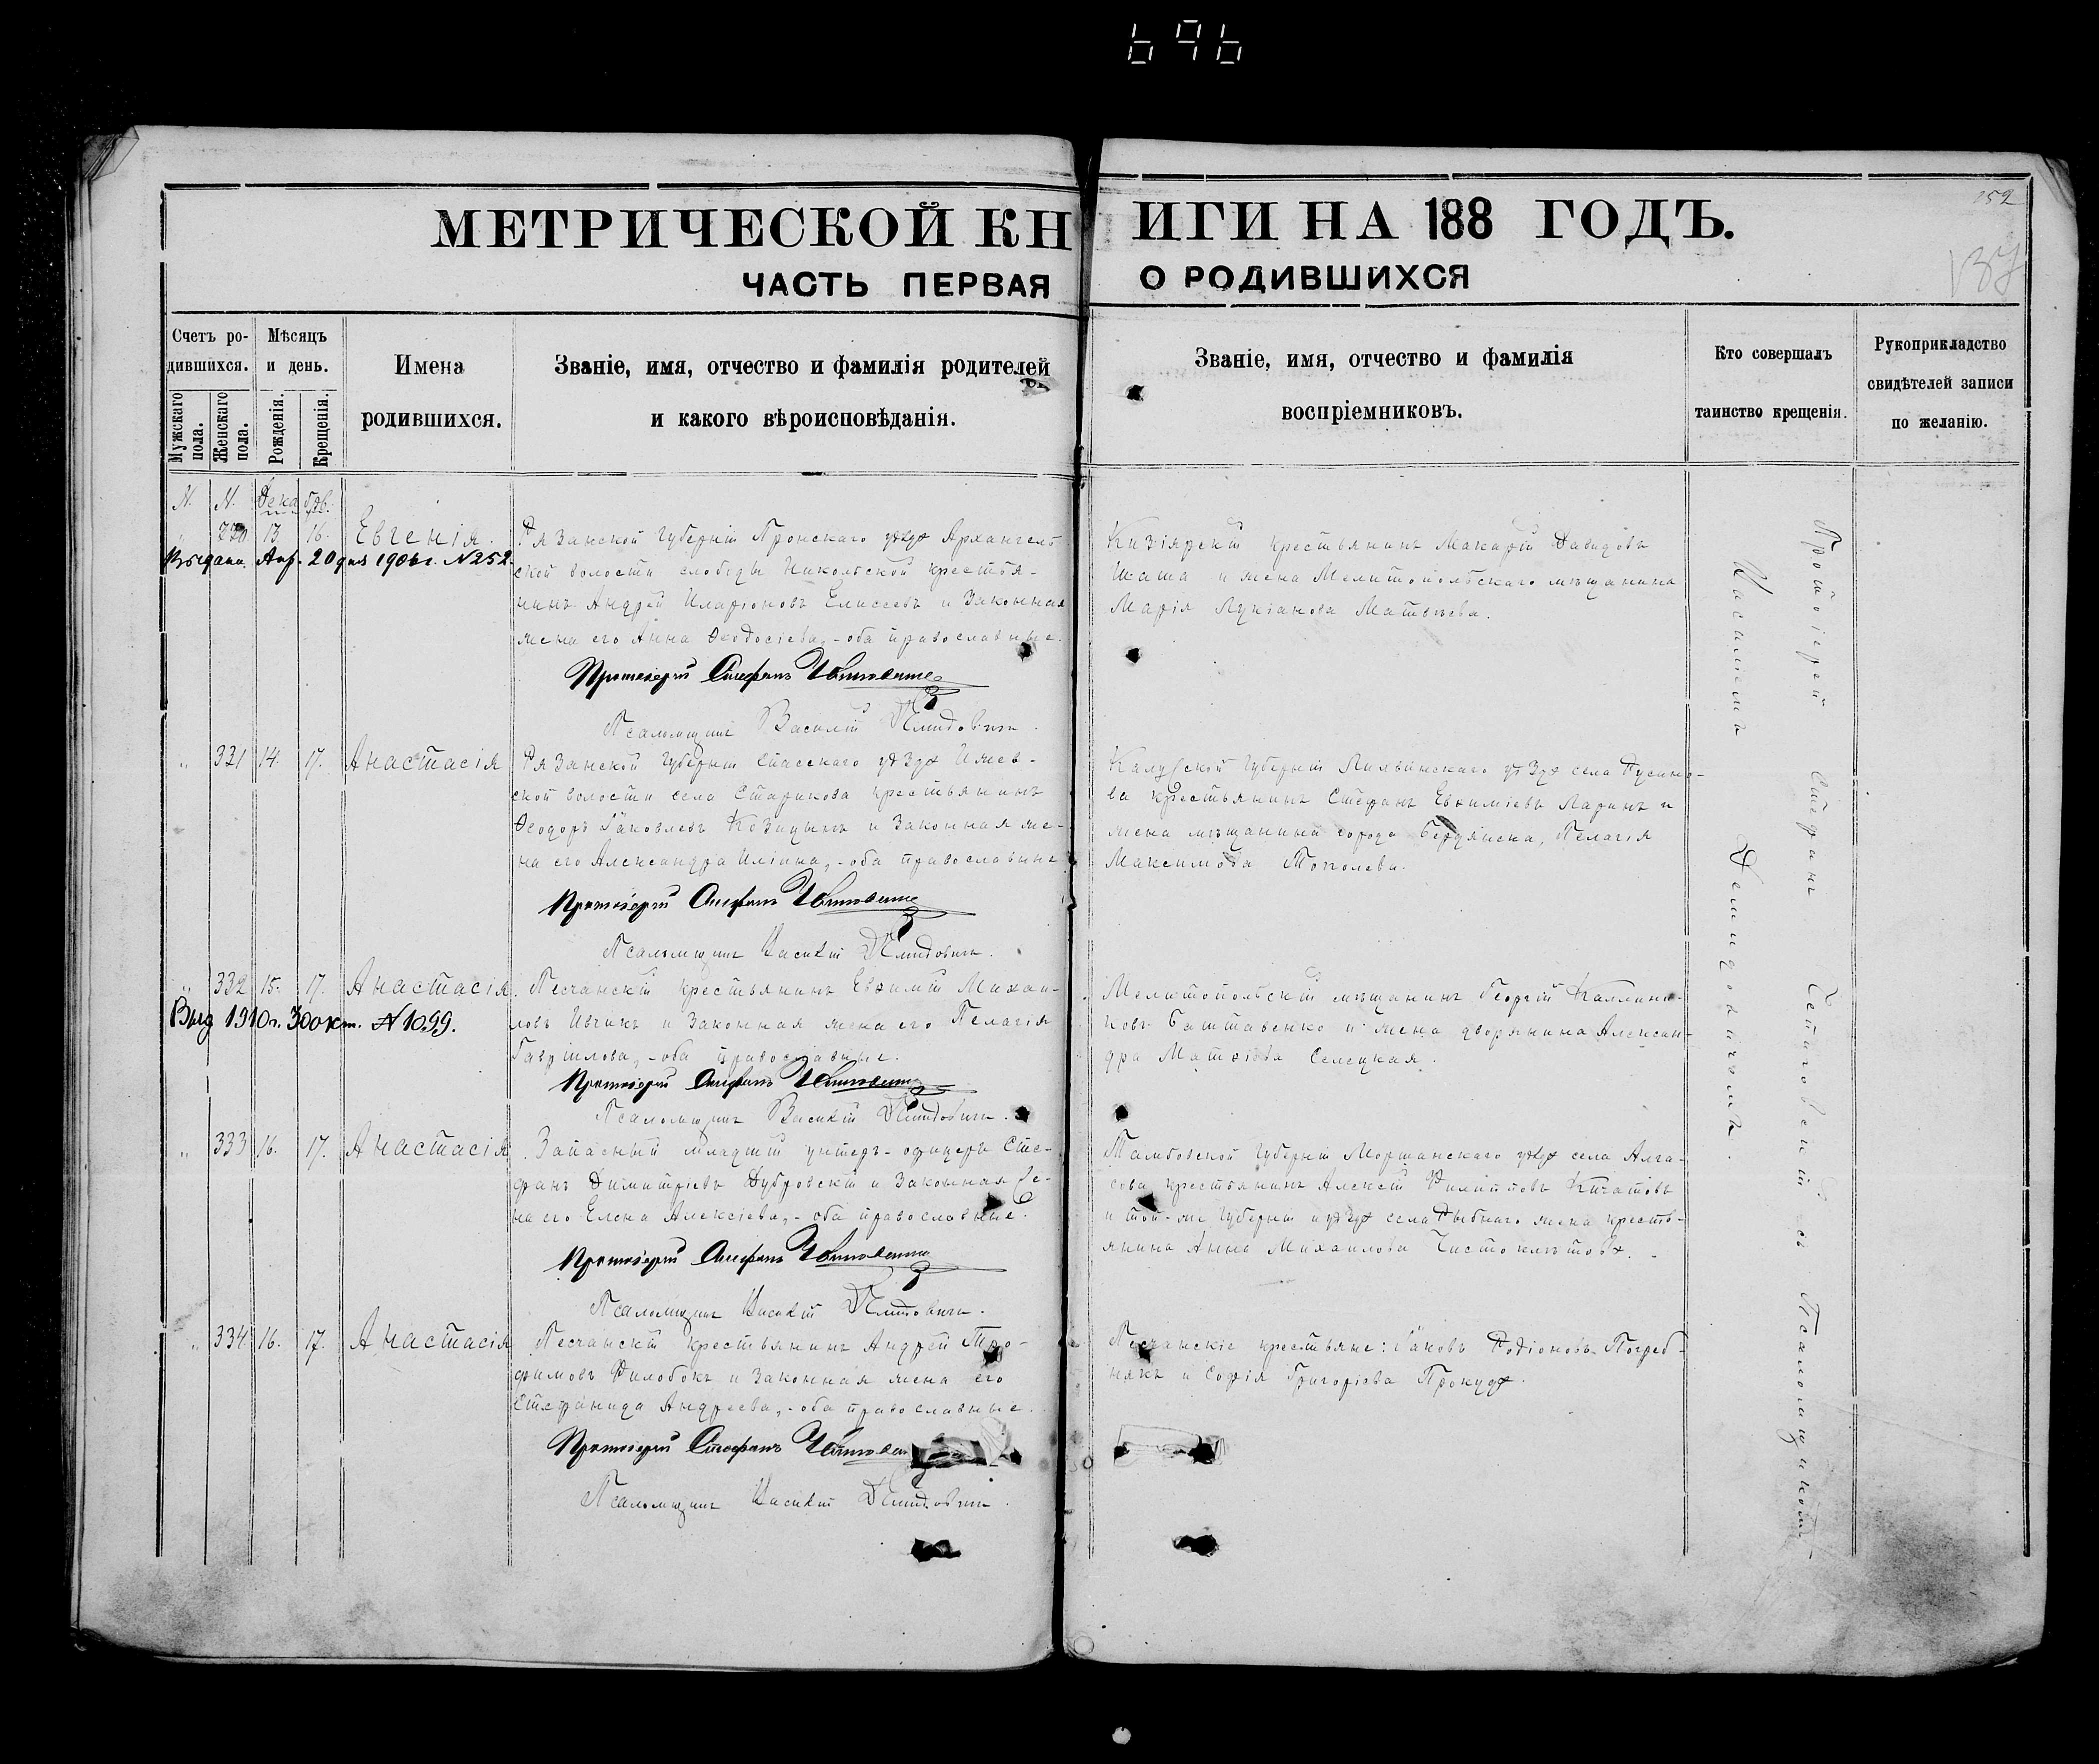 696
152
МЕТРИЧЕСКОЙ КНИГИ НА 188 ГОДЪ.
ЧАСТЬ ПЕРВАЯ О РОДИВШИХСЯ
Счетъ ро-
дившихся.
Мужскаго
пола.
Женскаго
пола.
Мѣсяцъ
и день.
Рожденія.
Крещенія.
Имена
родившихся.
Званіе, имя, отчество и фамилія родителей
и какого вѣроисповѣданія.
Званіе, имя, отчество и фамилія
воспріемниковъ.
Кто совершалъ
таинство крещенія.
Рукоприкладство
свидѣтелей записи
по желанію.
N. N. Декабрь.
13 16. Евгенія.
Рязанской Губерніи Пронскаго уѣзда Архангель-
ской волости слободы Никольской крестья-
нинъ Андрей Иларіоновъ Елисеевъ и законная
жена его Анна Ѳеодосіева, - оба православные.
Выдана Апр. 20 дня 1906 г. N 252.
Протоіерей Стефанъ
Псаломщикъ Василій
Кизіярскій крестьянинъ Макарій Давидовъ
Шаша и жена Мелитопольскаго мѣщанина
Марія Лукіанова Матвѣева.
" 331 14. 17. Анастасія
Рязанской Губерніи Спасскаго уѣзда Ижев-
ской волости села Старикова крестьянинъ
Ѳеодоръ Іаковлевъ Козицынъ и законная же-
на его Александра Иліина, - оба православные
Протоіерей Стефанъ
Псаломщикъ Василій
Калужской Губерніи Лихвинскаго уѣзда села
крестьянинъ Стефанъ Евѳиміевъ Ларинъ и
жена мѣщанина города Бердянска, Пелагія
Максимова Тополева.
" 332 15. 17. Анастасія.
Песчанскій крестьянинъ Евѳимій Михаи-
ловъ Ивчикъ и законная жена его Пелагія
Гавріилова, - оба православные.
Выд 1910 г. 30 окт. N 1099.
Протоіерей Стефанъ
Псаломщикъ Василій
Мелитопольскій мѣщанинъ Георгій Каллини-
ковъ Баштавенко и жена дворянина Алексан-
дра Матѳіева Селецкая.
" 333 16. 17. Анастасія
Запасный младшій унтеръ-офицеръ Сте-
фанъ Димитріевъ Дубровскій и законная же-
на его Елена Алексіева, - оба православные.
Протоіерей Стефанъ
Псаломщикъ Василій
Тамбовской Губерніи Моршанскаго уѣзда села Алга-
сова крестьянинъ Алексій Филипповъ
и той-же Губерніи и уѣзда села жена кресть-
янина Анна Михаилова Чистоклѣтова.
" 334 16. 17. Анастасія
Песчанскій крестьянинъ Андрей Тро-
фимовъ Филобокъ и законная жена его
Стефанида Андреева, - оба православные.
Протоіерей Стефанъ
Псаломщикъ Василій
Песчанскіе крестьяне: Іаковъ Родіоновъ Погреб-
някъ и Софія Григоріева Прокуда.
Протоіерей Стефанъ съ Псаломщикомъ
Василіемъ